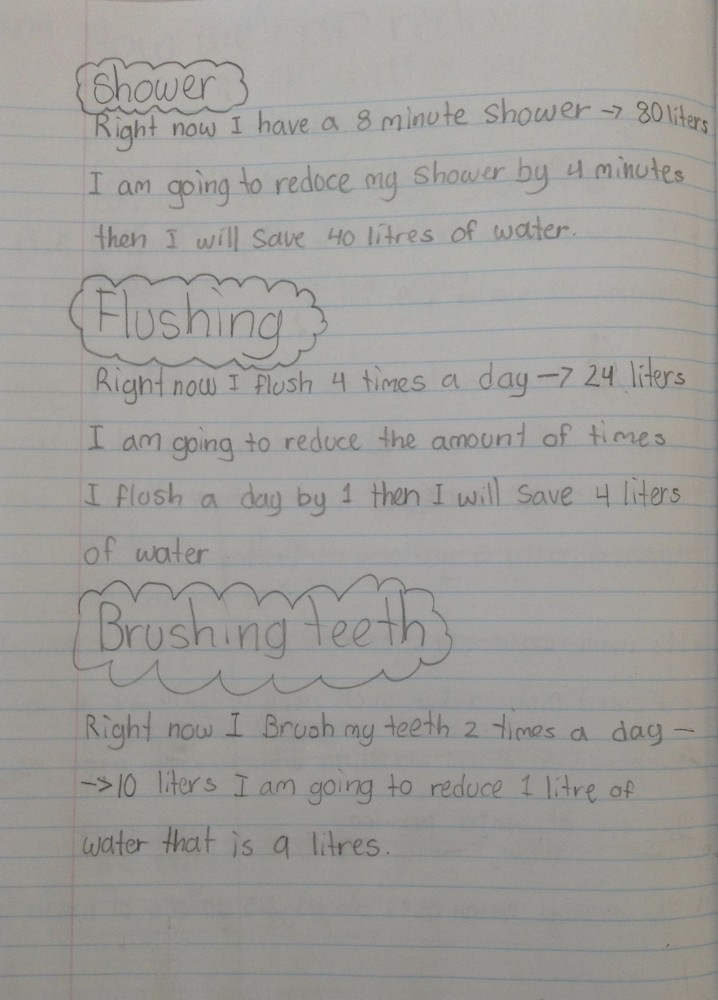 Shower
Right now I have a 8 minute shower → 80 liters
I am going to redoce my shower by 4 minutes
then I will save 40 litres of water.
Flushing
Right now I flush 4 times a day → 24 liters
I am going to reduce the amount of times
I flush a day by 1 then I will save 4 liters
of water
Brushing teeth
Right now I Brush my teeth 2 times a day -
-> 10 liters I am going to reduce 1 litre of
water that is 9 litres.